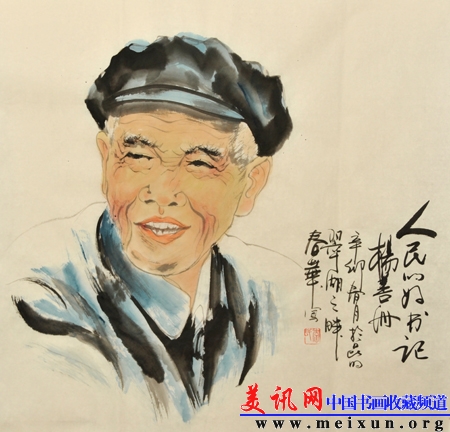 人民的好书记
楊善洲
辛卯春月於昆明
翠湖之畔
春華写
美讯网 中国书画收藏频道
www.meixun.org